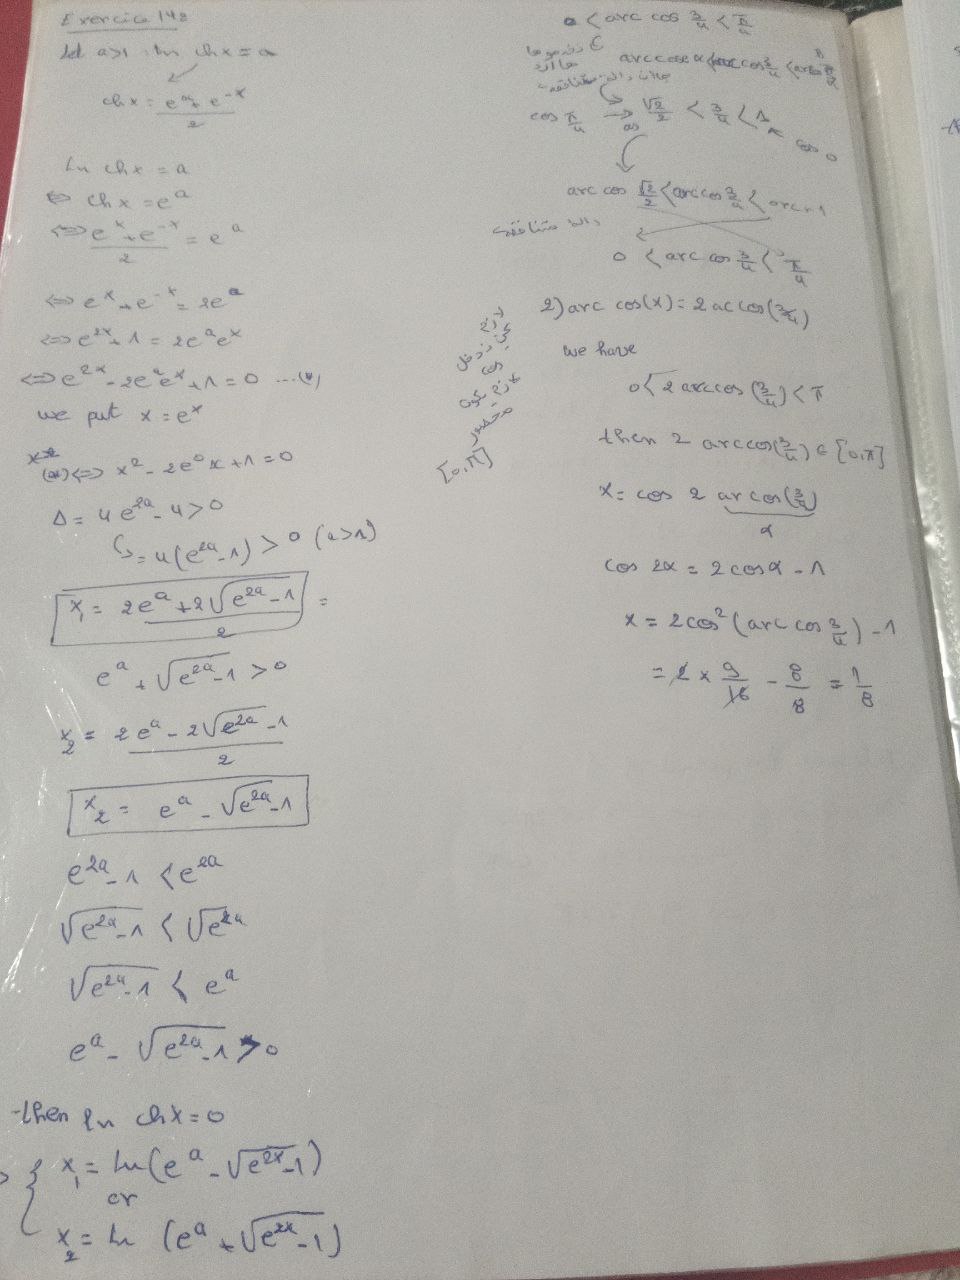 Exercice 14:
let a>1 : ln chx = a
chx = e^x + e^-x / 2
ln chx = a
⇔ chx = e^a
⇔ e^x + e^-x / 2 = e^a
⇔ e^x + e^-x = 2e^a
⇔ e^2x + 1 = 2e^a e^x
⇔ e^2x - 2e^a e^x + 1 = 0 ...(*)
we put x = e^x
(*) ⇔ x² - 2e^a x + 1 = 0
Δ = 4e^2a - 4 > 0
= 4(e^2a - 1) > 0 (a>1)
x₁ = 2e^a + 2√(e^2a - 1) / 2 =
e^a + √(e^2a - 1) > 0
x₂ = 2e^a - 2√(e^2a - 1) / 2
x₂ = e^a - √(e^2a - 1)
e^2a - 1 < e^2a
√(e^2a - 1) < √(e^2a)
√(e^2a - 1) < e^a
e^a - √(e^2a - 1) > 0
then ln chx = 0
x₁ = ln(e^a - √(e^2x - 1))
or
x₂ = ln (e^a + √(e^2x - 1))
0 < arc cos 3/4 < π/4
cos π/4 → √2/2 < 3/4 < 1
cos 0
arc cos √2/2 < arc cos 3/4 < arc 1
دالة متناقصة
0 < arc cos 3/4 < π/4
2) arc cos(x) = 2 ac cos(3/4)
we have
0 < 2 arc cos (3/4) < π
then 2 arc cos(3/4) ∈ [0,π]
x = cos 2 ar cos(3/4)
α
cos 2α = 2 cos α - 1
x = 2 cos² (arc cos 3/4) - 1
= 2 × 9/16 - 8/8 = 1/8
لازم
cos
لازم تكون
محصور
[0,π]